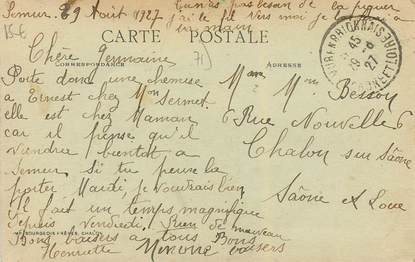 Tu n'as pas besoin de la piquer
Semur. 29 Août 1927 j'ai le fil vers moi je la
CARTE POSTALE
15€
71
Chère Germaine
CORRESPONDANCE
ADRESSE
Porte donc une chemise
a Ernest chez Mme Sermet
elle est chez Maman
car il pense qu'il
viendra bientôt a
Semur si tu peux la
porter Mardi, je voudrais bien
Il fait un temps magnifique
depuis Vendredi, Rien de nouveau
Bons baisers a tous Bons
Henriette baisers
IMP. BOURGEOIS FRÈRES, CHALON
Mme Besson
6 Rue Nouvelle 6
Chalon sur Saône
Saône et Loire
SEMUR-EN-BRIONNAIS
SAÔNE-ET-LOIRE
27